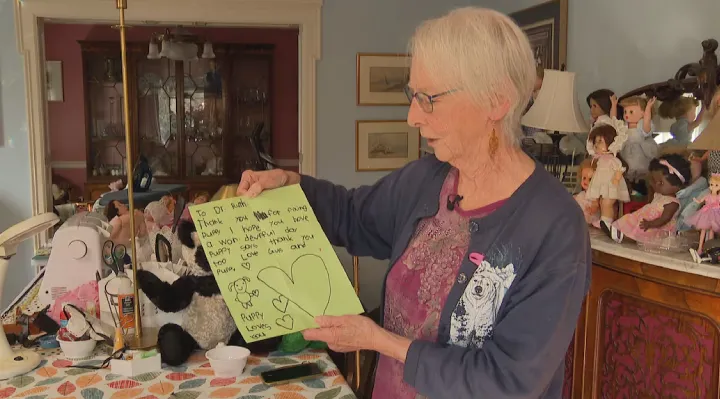 To Dr Ruth
Thank you for fixing
Puppy I hope you have
a won derful day
Puppy says thank you
too Love Gus and
Puppy
Puppy
Loves
you